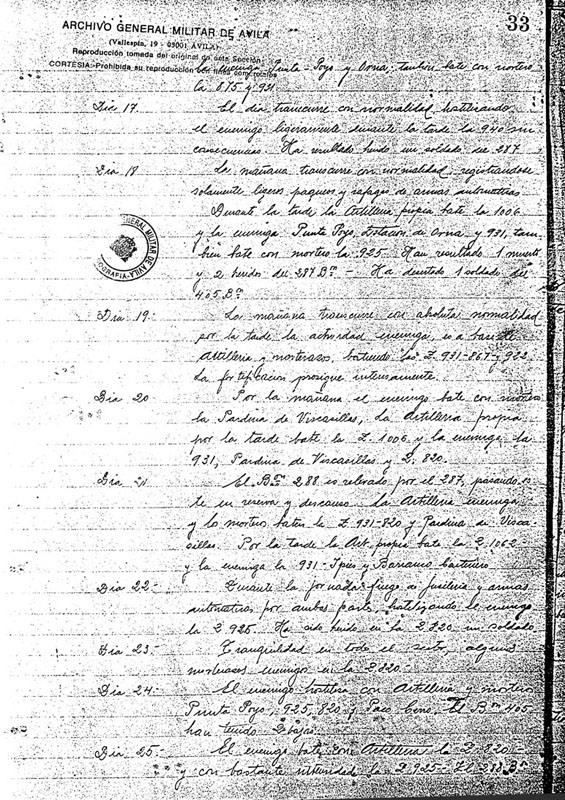 33
ARCHIVO GENERAL MILITAR DE AVILA
(Vallespín, 19 - 05001 AVILA)
Reproducción tomada del original de esta Sección
CORTESIA: Prohibida su reproducción con fines comerciales
la enemiga Punta-Poyo y Orna, tambien bate con mortero
la 875 y 931.
Dia 17. El dia transcurre con normalidad hostilizando
el enemigo ligeramente durante la tarde la 940 sin
consecuencias. Ha resultado herido un soldado del 287
Dia 18 La mañana transcurre con normalidad, registrandose
solamente ligeros paqueos y rafagas de armas automaticas
Durante la tarde la Artilleria propia bate la 1006
y la enemiga Punta Poyo, Estacion de Orna y 931, tam-
bien bate con mortero la 925. Han resultado 1 muerto
y 2 heridos del 287 Bon - Ha desertado 1 soldado del
405 Bon
Dia 19.- La mañana transcurre con absoluta normalidad
por la tarde la actividad enemiga, es a base de
Artilleria y morterazos, batiendo las Z. 931-867 y 922
La fortificacion prosigue intensamente.
Dia 20 Por la mañana el enemigo bate con mortero
la Pardina de Viscasillas, La Artilleria propia
por la tarde bate la Z 1006 y la enemiga la
931, Pardina de Viscasillas y Z. 820.
Dia 21 El Bon 288 es relevado por el 287, pasando es-
te en reserva y descanso. La Artilleria enemiga
y los morteros baten la Z 931-820 y Pardina de Visca-
sillas. Por la tarde la Art. propia bate la Z. 1062
y la enemiga la 931- Ipies y Barranco
Dia 22- Durante la jornada fuego de fusileria y armas
automaticas, por ambas partes, hostilizando el enemigo
la Z 925. Ha sido herido en la Z 820 un soldado
Dia 23- Tranquilidad en todo el sector, algunos
morterazos enemigos en la Z 820-
Dia 24.- El enemigo hostiliza con Artilleria y mortero
Punta Poyo, 925, 820 y Paco Ceno. El Bon 405
han tenido 2 bajas.
Dia 25- El enemigo bate con Artilleria la Z. 820-
y con bastante intensidad la Z 925- El 288 Bon